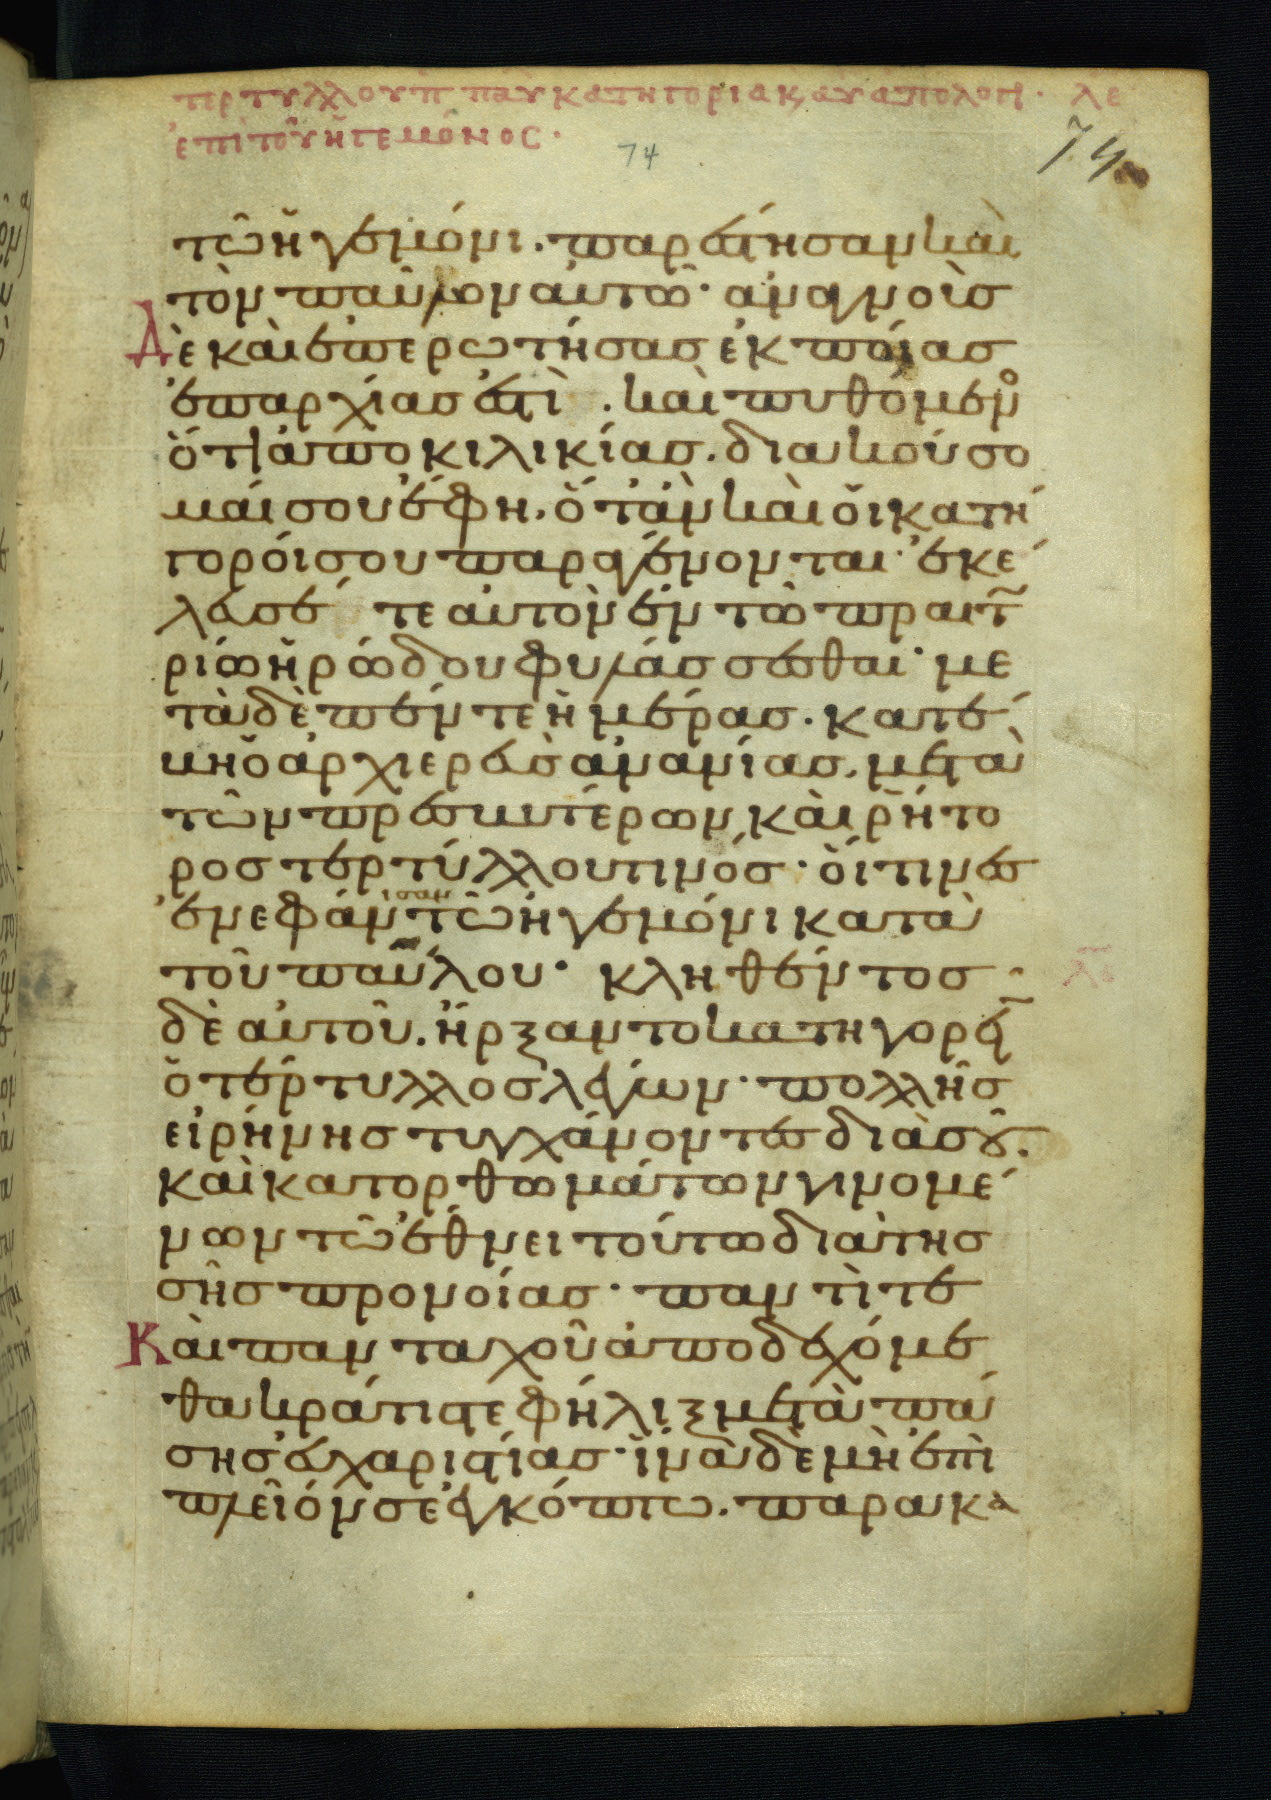 τερτύλλου π παυ κατηγορία κ, αυ απολογί · λε
ἐπὶ τοῦ ἡγεμόνος ·
74
74
τῶ ἡγεμόνι . παρέστησαν καὶ
τὸν παῦλον αὐτῶ · ἀναγνοὺς
δὲ καὶ ἐπερωτήσας ἐκ ποίας
ἐπαρχίας ἐστὶ . καὶ πυθόμεν
ὅτι ἀπο κιλικίας . διακούσο
μαί σου ἔφη . ὅταν καὶ οἱ κατή
γοροί σου παραγένονται · ἐκέ
λευσέ τε αὐτὸν ἐν τῶ πραιτ
ρίω ἡρώδου φυλάσσεσθαι · με
τὰ δὲ πέντε ἡμέρας . κατέ
βη ὁ ἀρχιερεὺς ἀνανίας . μετὰ
τῶν πρεσβυτέρων καὶ ῥήτο
ρος τερτύλλου τινός · οἵτινες
ἐνεφάνισαν τῶ ἡγεμόνι κατὰ
τοῦ παύλου · κληθέντος
δὲ αὐτοῦ . ἤρξαντο κατηγορεῖ
ὁ τέρτυλλος λέγων · πολλῆς
εἰρήνης τυγχάνοντες διὰ σοῦ .
καὶ κατορθωμάτων γινομέ
νων τῶ ἔθνει τούτω διὰ τῆς
σῆς προνοίας · παντὶ τε
Καὶ πανταχοῦ ἀποδεχόμε
θα κράτιστε φήλιξ μετὰ πά
σης εὐχαριστίας · ἵνα δὲ μὴ ἐπὶ
πλεῖόν σε ἐγκόπτω . παρακα